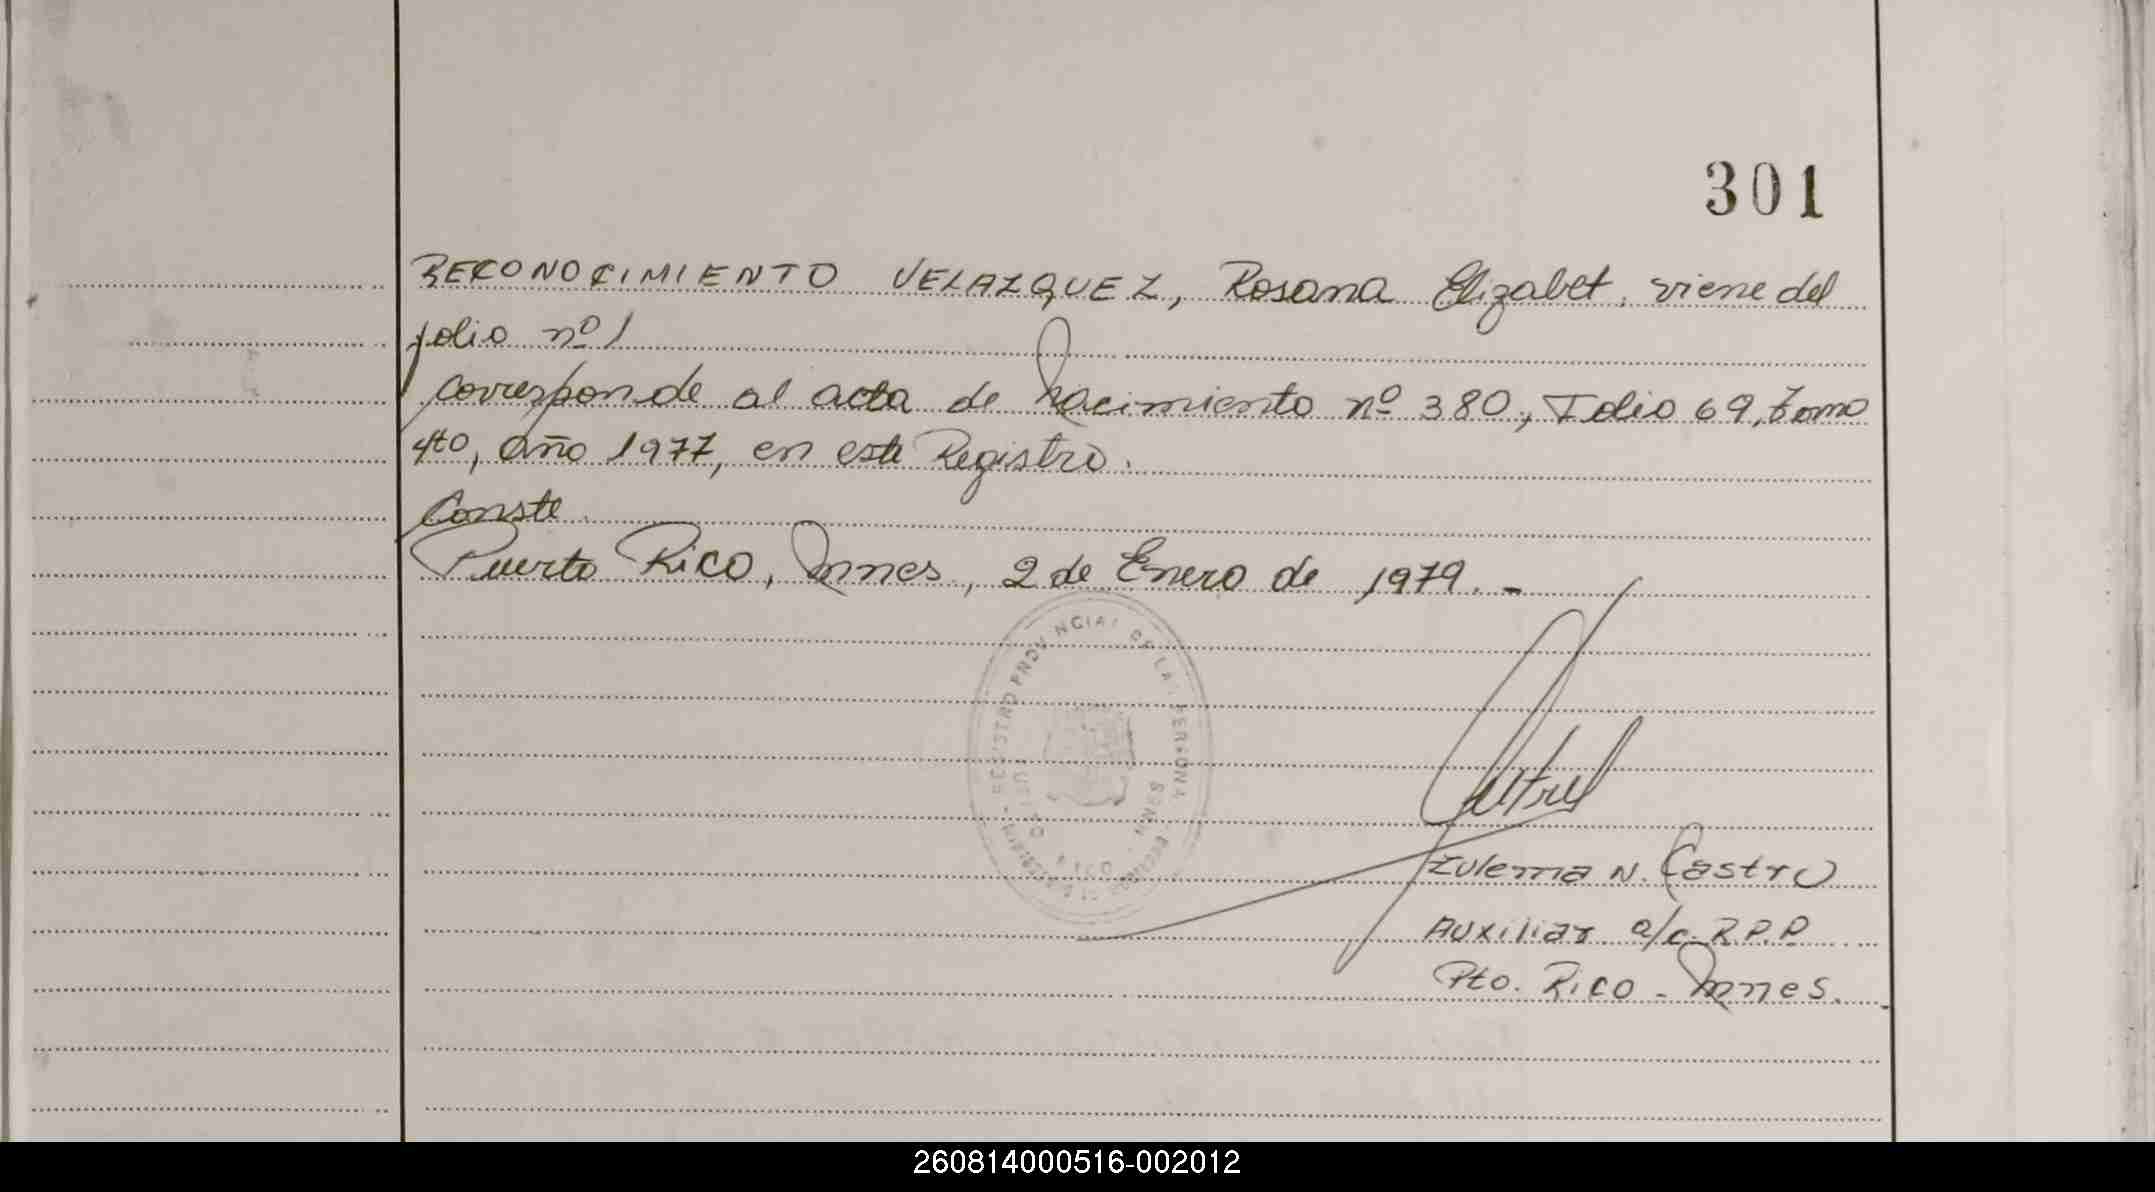 301
RECONOCIMIENTO VELAZQUEZ, Rosana Elizabet, viene del
folio nº 1
corresponde al acta de Nacimiento nº 380, Folio 69, tomo
4to, Año 1977, en este Registro.
Conste.
Puerto Rico, Mnes, 2 de Enero de 1979. -
REGISTRO PROVINCIAL DE LAS PERSONAS
RICO
Zulema N. Castro
Auxiliar a/c. R.P.P
Pto. Rico - Mnes.
260814000516-002012